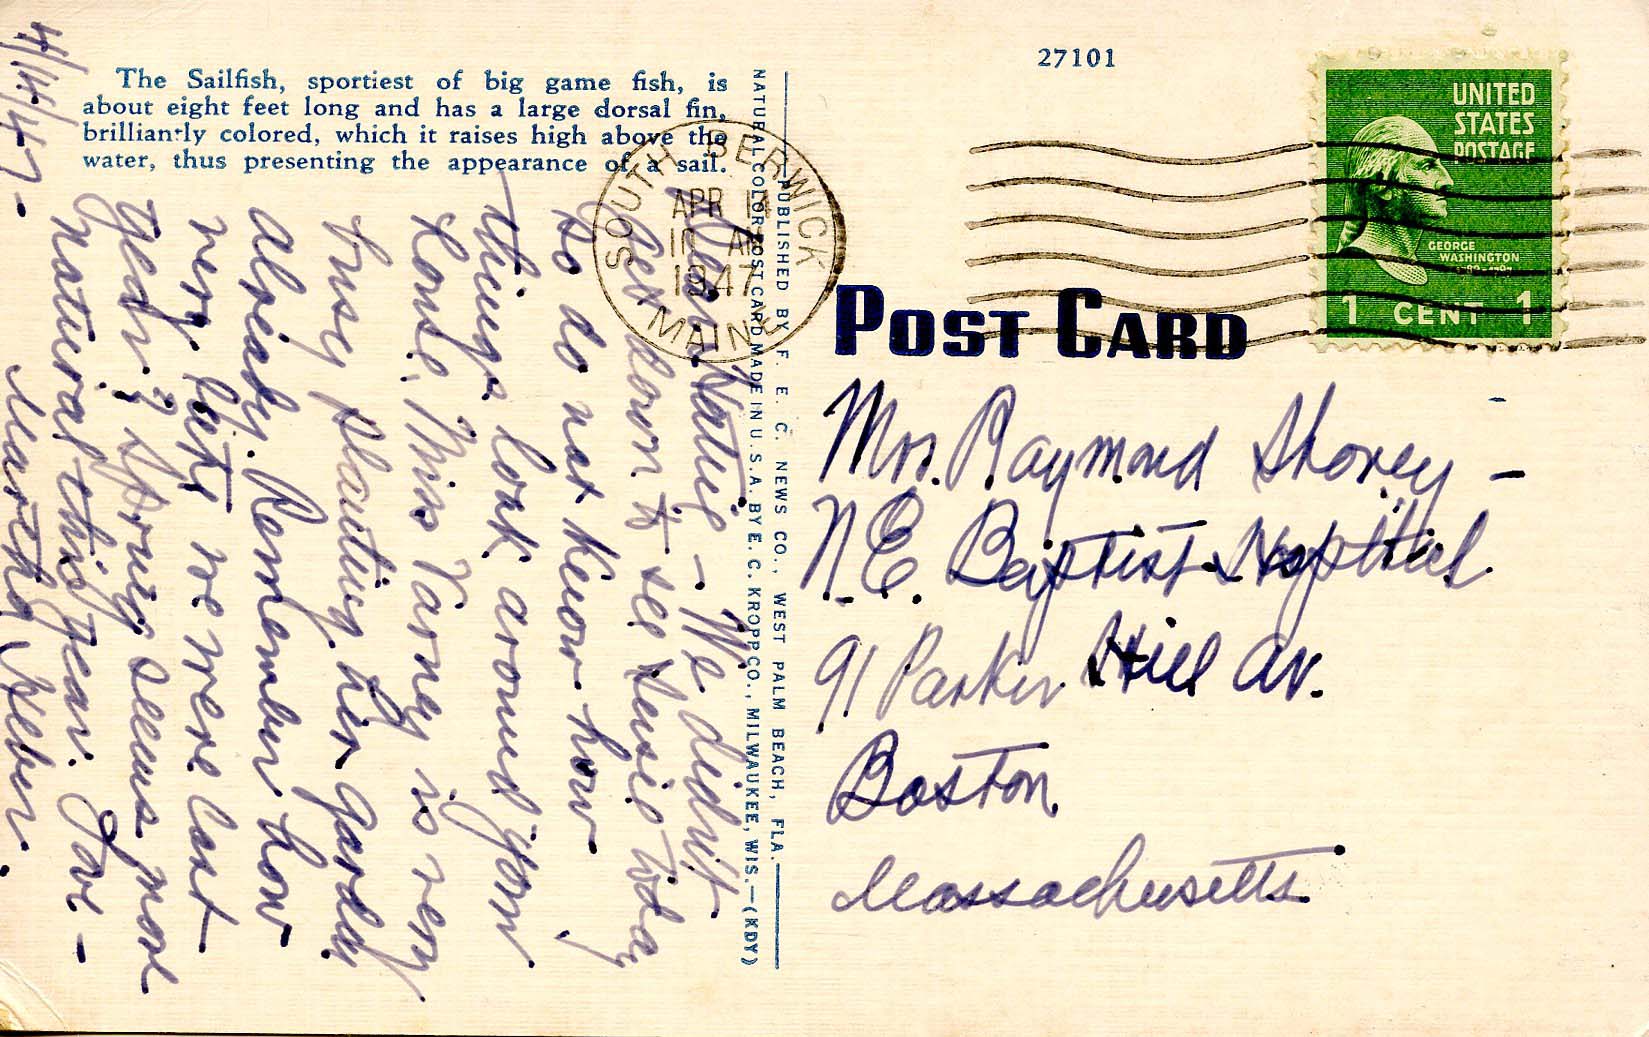 27101
The Sailfish, sportiest of big game fish, is
about eight feet long and has a large dorsal fin,
brilliantly colored, which it raises high above the
water, thus presenting the appearance of a sail.
UNITED
STATES
POSTAGE
GEORGE
WASHINGTON
1 CENT 1
SOUTH BERWICK
APR
1947
MAINE
POST CARD
Mrs. Raymond Shorey -
N.E. Baptist Hospital
91 Parker Hill Av.
Boston
Massachusetts.
PUBLISHED BY F. E. C. NEWS CO., WEST PALM BEACH, FLA.
NATURAL COLOR POST CARD MADE IN U. S. A. BY E. C. KROPP CO., MILWAUKEE, WIS.—(KDY)
4/14/47 -
Dear - We didn't
get down to see today
so do not know how
things look around your
House. Miss Varney is very
busy planting her garden
already. Remember how
very late we were last
year? Spring seems more
natural this year. Love -
Martha Weber.